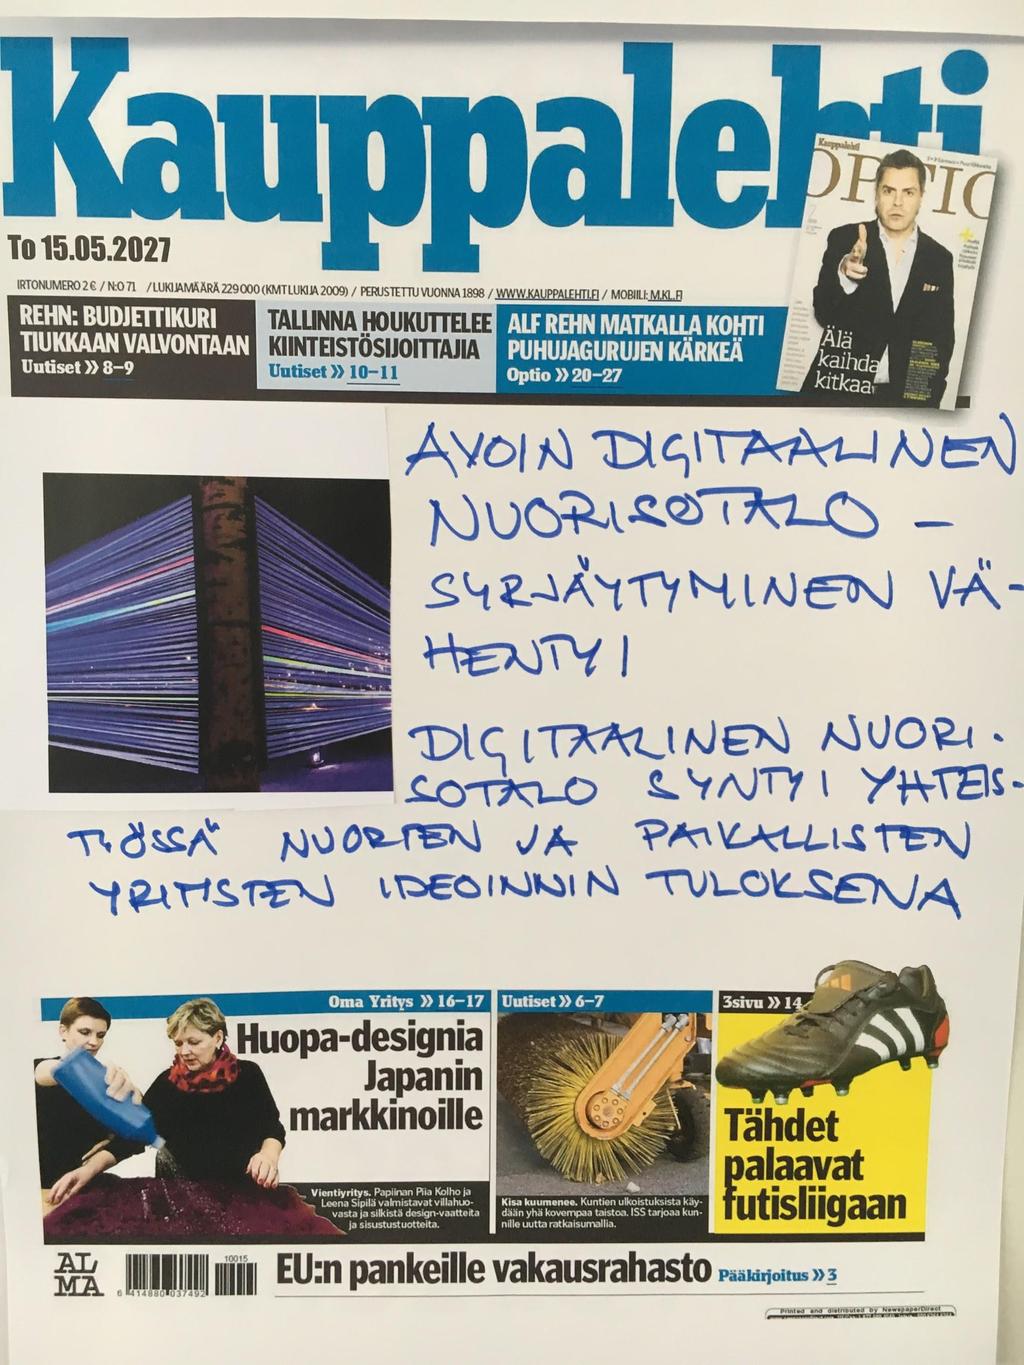 Kauppalehti
To 15.05.2027
IRTONUMERO 2 € / N:O 71 / LUKIJAMÄÄRÄ 229 000 (KMT LUKIJA 2009) / PERUSTETTU VUONNA 1898 / WWW.KAUPPALEHTI.FI / MOBIILI: M.KL.FI
Kauppalehti
OPTIO
Älä
kaihda
kitkaa
REHN: BUDJETTIKURI
TIUKKAAN VALVONTAAN
Uutiset » 8–9
TALLINNA HOUKUTTELEE
KIINTEISTÖSIJOITTAJIA
Uutiset » 10–11
ALF REHN MATKALLA KOHTI
PUHUJAGURUJEN KÄRKEÄ
Optio » 20–27
AVOIN DIGITAALINEN
NUORISOTALO –
SYRJÄYTYMINEN VÄ-
HENTYI
DIGITAALINEN NUORI-
SOTALO SYNTYI YHTEIS-
TYÖSSÄ NUORTEN JA PAIKALLISTEN
YRITYSTEN IDEOINNIN TULOKSENA
Oma Yritys » 16–17
Huopa-designia
Japanin
markkinoille
Vientiyritys. Papiinan Piia Kolho ja
Leena Sipilä valmistavat villahuo-
vasta ja silkistä design-vaatteita
ja sisustustuotteita.
Uutiset » 6–7
Kisa kuumenee. Kuntien ulkoistuksista käy-
dään yhä kovempaa taistoa. ISS tarjoaa kun-
nille uutta ratkaisumallia.
3sivu » 14
Tähdet
palaavat
futisliigaan
AL
MA
10015
6 414880 037492
EU:n pankeille vakausrahasto Pääkirjoitus » 3
Printed and distributed by NewspaperDirect